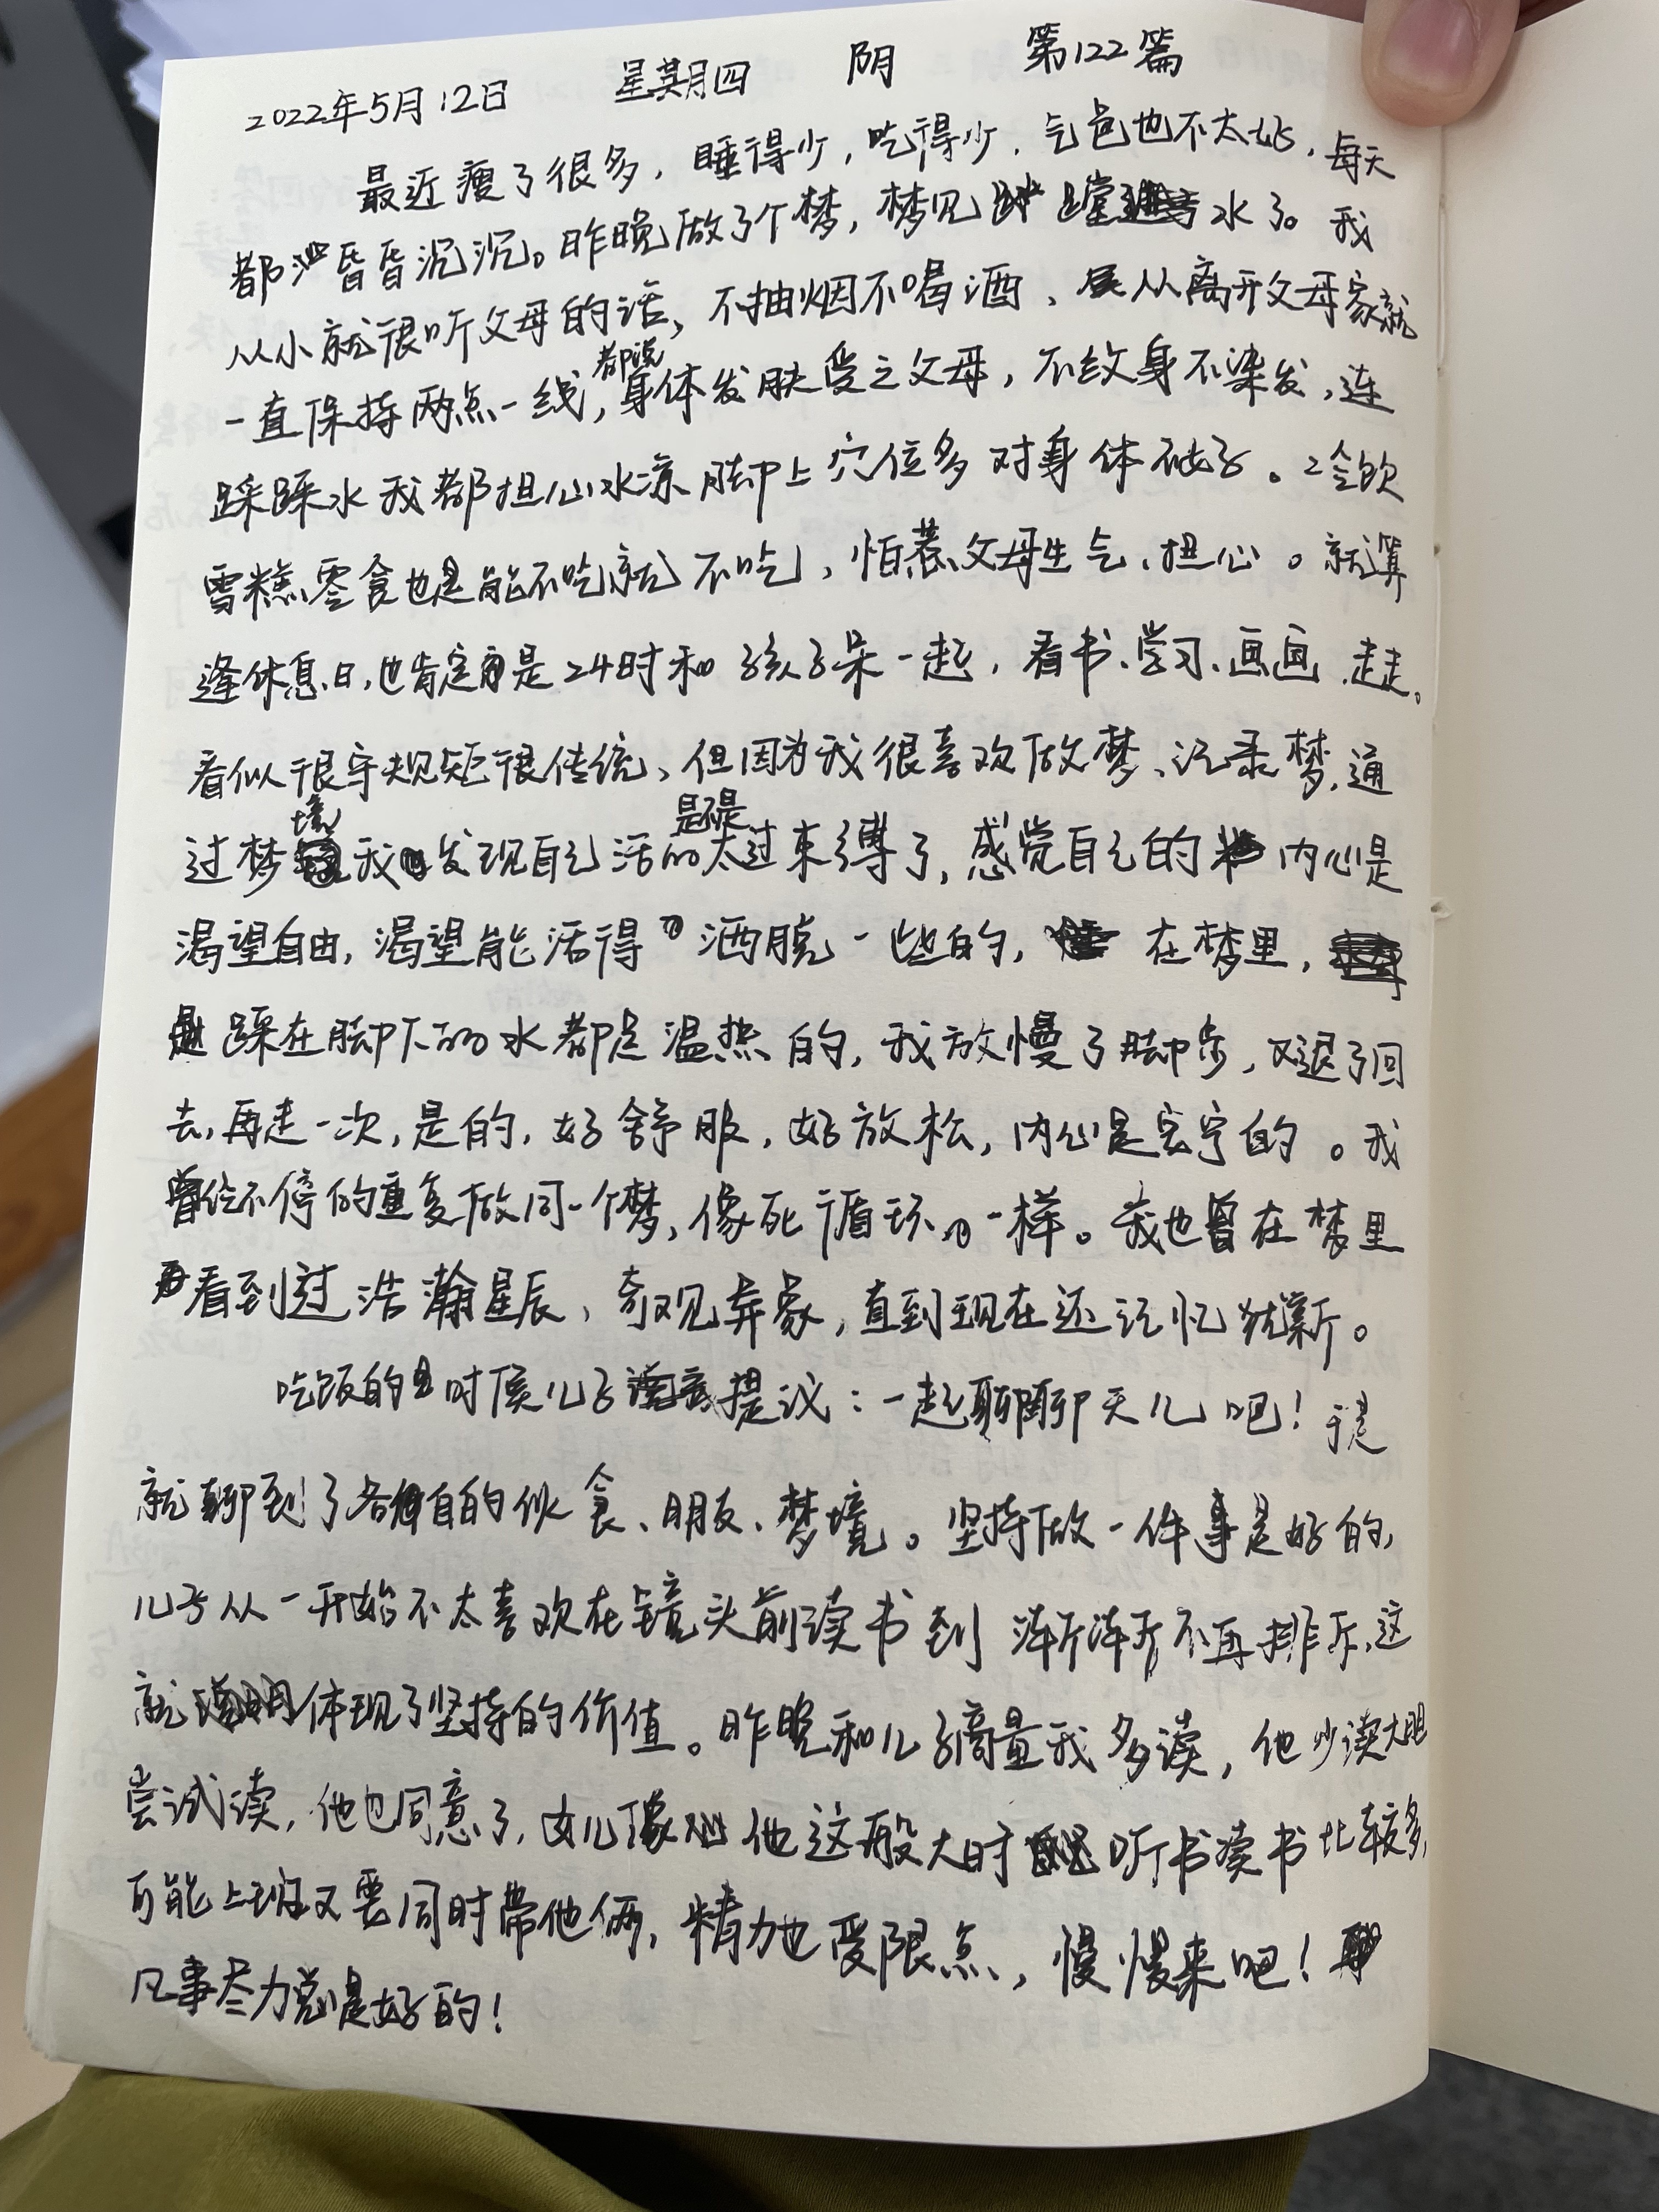 2022年5月12日 星期四 阴 第122篇
最近瘦了很多，睡得少，吃得少、气色也不太好，每天
都昏昏沉沉。昨晚做了个梦，梦见水了。我
从小就很听父母的话，不抽烟不喝酒、从离开父母家就
一直保持两点一线，都说身体发肤受之父母，不纹身不染发，连
踩踩水我都担心水凉脚上穴位多对身体不好。冷饮
雪糕零食也是能不吃就不吃，怕惹父母生气、担心。就算
逢休息日，也肯定是24时和孩子呆一起，看书、学习、画画、走走。
看似很守规矩很传统、但因为我很喜欢做梦、记录梦，通
过梦境我发现自己活的是不是太过束缚了，感觉自己的内心是
渴望自由，渴望能活得洒脱一些的，在梦里，
踩在脚下的水都是温热的，我放慢了脚步，又退了回
去，再走一次，是的，好舒服，好放松，内心是安宁的。我
曾经不停的重复做同一个梦，像死循环一样。我也曾在梦里
看到过浩瀚星辰、奇观异象，直到现在还记忆犹新。
吃饭的时候儿子提议：一起聊聊天儿吧！于是
就聊到了各自的伙食、朋友、梦境。坚持做一件事是好的，
儿子从一开始不太喜欢在镜头前读书到渐渐不再排斥，这
就体现了坚持的价值。昨晚和儿子商量我多读，他少读大胆
尝试读，他也同意了，女儿像他这般大时听书读书比较多，
可能上班又要同时带他俩，精力也受限点，慢慢来吧！
凡事尽力总是好的！